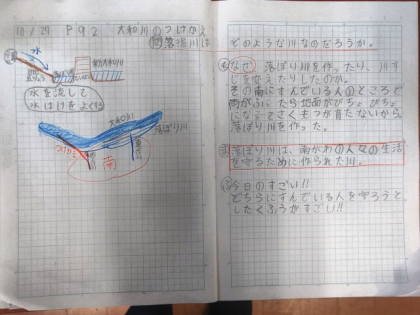 10/29 P92 大和川のつけかえ
問 落堀川は
水
水を流して
水はけをよくする
大和川
落ぼり川
つけかえ
南
どのような川なのだろうか。
なぜ 落ぼり川を作ったり、川すじ
を変えたりしたのか。
その南にすんでいる人のところで
雨がふったら地面がびちょびちょ
になってさくもつが育たないから
落ぼり川を作った。
落ぼり川は、南がわの人々の生活
を守るために作られた川。
今日のすごい!!
どちらにすんでいる人を守ろうと
したくふうがすごい!!